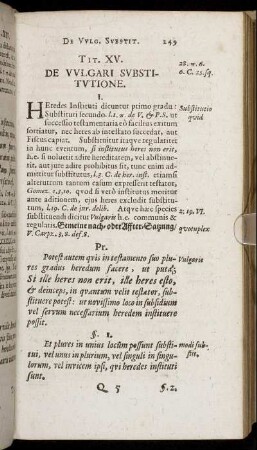 DE VVLG. SVBSTIT. 249
TIT. XV.
DE VVLGARI SVBSTI-
TVTIONE.
28. π. 6.
6. C. 25. sq.
I.
HEredes Instituti dicuntur primo gradu:
Substituti secundo. l. 1. π. de V. & P. S. ut
successio testamentaria eò facilius exitum
sortiatur, nec heres ab intestato succedat, aut
Fiscus capiat. Substituitur itaqve regulariter
in hunc eventum, si institutus heres non erit,
h. e. si noluerit adire hereditatem, vel abstinue-
rit, aut jure adire prohibitus sit, tunc enim ad-
mittitur substitutus, l. 3. C. de her. inst. etiamsi
alterutrum tantum casum expresserit testator,
Gomez. 1. 3. 10. qvod si verò institutus moritur
ante aditionem, ejus heres excludit substitu-
tum, l. 19. C. de jur. delib. Atqve hæc species
substituendi dicitur Vulgaris h. e. communis &
regularis, Gemeine nach- oder Affter-Satzung/
V. Carpz. 3. 8. def. 8.
Substitutio
quid
2. 19. VI.
qvotuplex
Pr.
Potest autem qvis in testamento suo plu-
res gradus heredum facere, ut putà;
Si ille heres non erit, ille heres esto,
& deinceps, in qvantum velit testator, sub-
stituere potest: ut novissimo loco in subsidium
vel servum necessarium heredem instituere
possit.
Vulgaris
§. 1.
Et plures in unius locùm possunt substi-
tui, vel unus in plurium, vel singuli in singu-
lorum, vel invicem ipsi, qvi heredes instituti
sunt.
modi sub-
stit.
Q 5 §. 2.